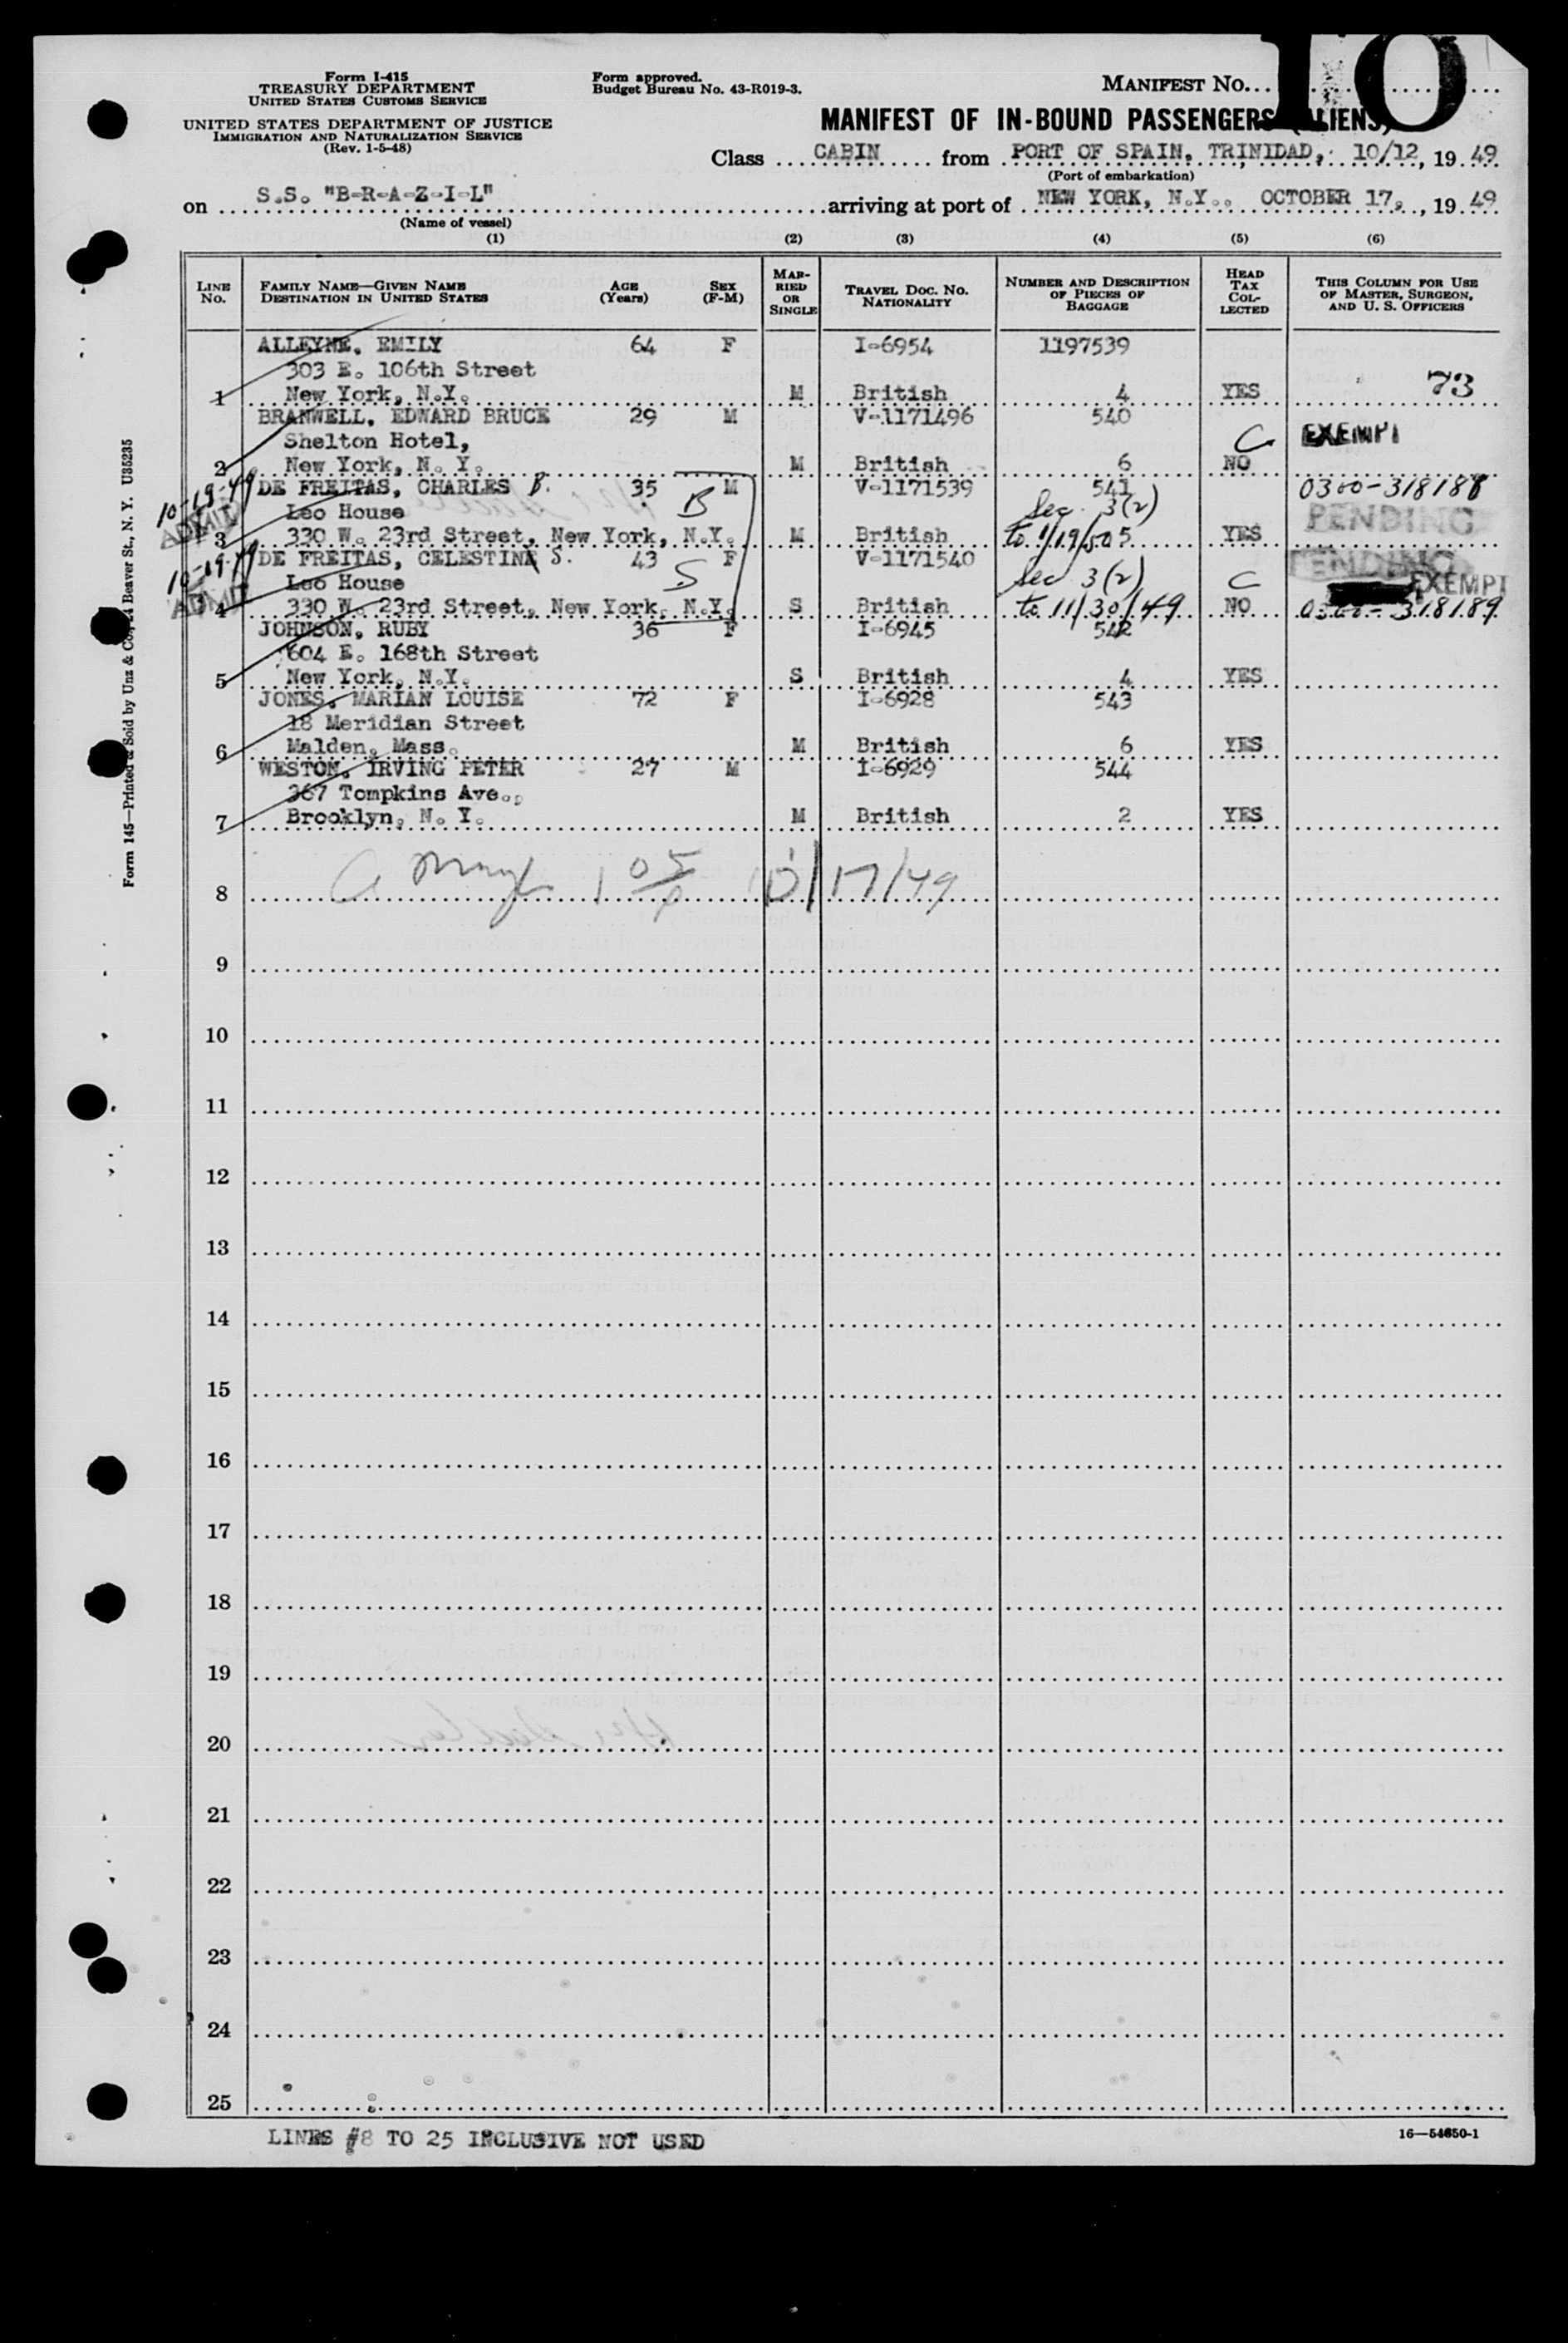 Form I-415
TREASURY DEPARTMENT
UNITED STATES CUSTOMS SERVICE
UNITED STATES DEPARTMENT OF JUSTICE
IMMIGRATION AND NATURALIZATION SERVICE
(Rev. 1-5-48)
Form approved.
Budget Bureau No. 43-R019-3.
MANIFEST No. 10
MANIFEST OF IN-BOUND PASSENGERS (ALIENS)
Class CABIN from PORT OF SPAIN, TRINIDAD, 10/12, 19 49
(Port of embarkation)
on S.S. "B-R-A-Z-I-L" arriving at port of NEW YORK, N.Y. OCTOBER 17, 19 49
(Name of vessel)
(1) (2) (3) (4) (5) (6)
LINE No. FAMILY NAME—GIVEN NAME DESTINATION IN UNITED STATES AGE (Years) SEX (F-M) MARRIED OR SINGLE TRAVEL DOC. NO. NATIONALITY NUMBER AND DESCRIPTION OF PIECES OF BAGGAGE HEAD TAX COLLECTED THIS COLUMN FOR USE OF MASTER, SURGEON, AND U. S. OFFICERS
ALLEYNE, EMILY 64 F I-6954 1197539
303 E. 106th Street
1 New York, N.Y. M British 4 YES 73
BRANWELL, EDWARD BRUCE 29 M V-1171496 540
Shelton Hotel, C EXEMPT
2 New York, N. Y. M British 6 NO
10-19-49 DE FREITAS, CHARLES B. 35 M V-1171539 541 0300-318188
ADMIT Leo House B Sec. 3(2) PENDING
3 330 W. 23rd Street, New York, N.Y. M British to 1/19/50 5 YES
10-19-49 DE FREITAS, CELESTINA S. 43 F V-1171540 PENDING
ADMIT Leo House S Sec 3(2) C EXEMPT
4 330 W. 23rd Street, New York, N.Y. S British to 11/30/49 NO 0300-318189
JOHNSON, RUBY 36 F I-6945 542
604 E. 168th Street
5 New York, N.Y. S British 4 YES
JONES, MARIAN LOUISE 72 F I-6928 543
18 Meridian Street
6 Malden, Mass. M British 6 YES
WESTON, IRVING PETER 27 M I-6929 544
367 Tompkins Ave.,
7 Brooklyn, N. Y. M British 2 YES
8 10/17/49
9
10
11
12
13
14
15
16
17
18
19
20
21
22
23
24
25
LINES #8 TO 25 INCLUSIVE NOT USED
16—54650-1
Form 145—Printed & Sold by Unz & Co., 24 Beaver St., N. Y. U35235